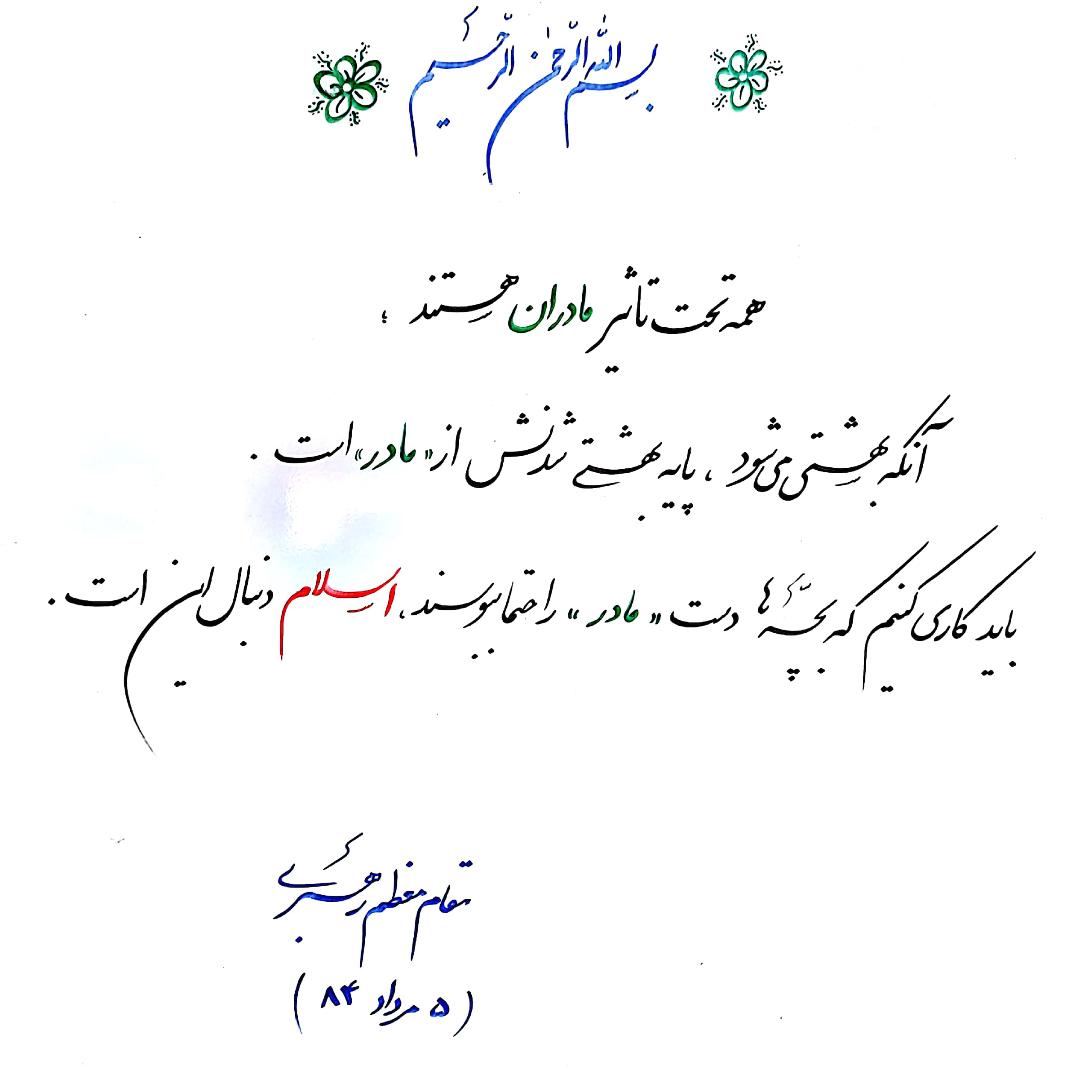 بسم الله الرحمن الرحیم
همه تحت تاثیر مادران هستند ؛
آنکه بهشتی می‌شود ، پایه بهشتی شدنش از «مادر» است .
باید کاری کنیم که بچّه‌ها دست « مادر » را حتما ببوسند ، اسلام دنبال این است .
مقام معظم رهبری
( ۵ مرداد ۸۴ )